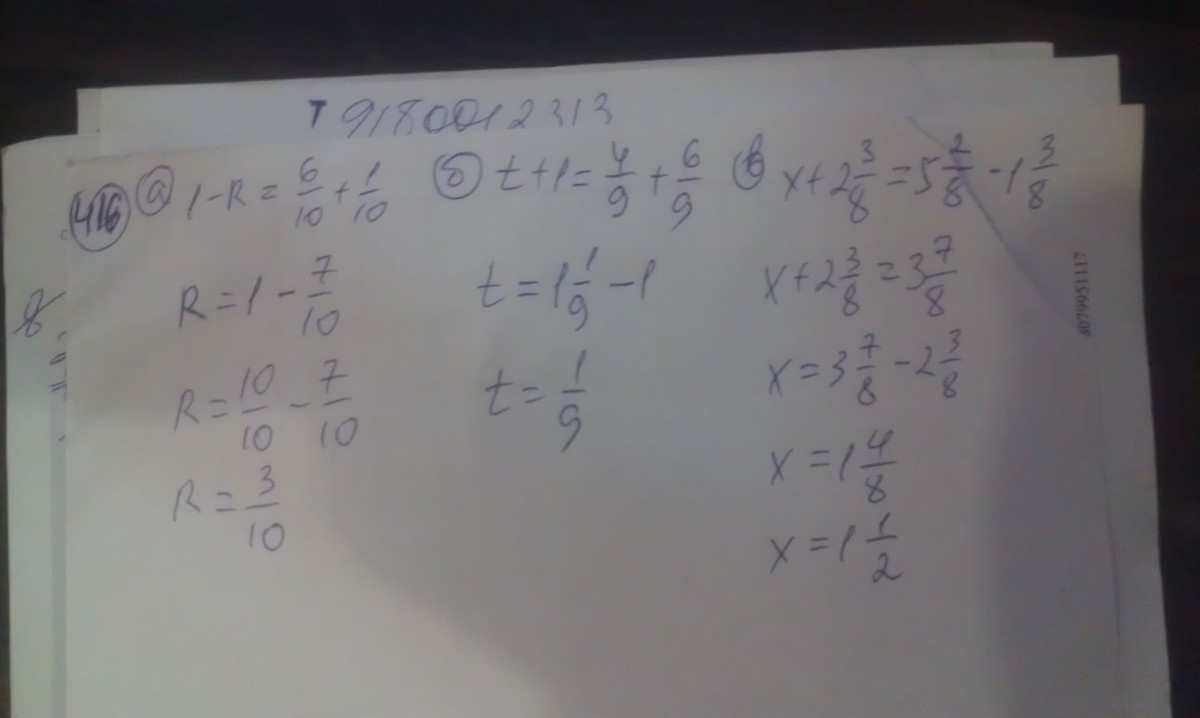 т 9180012313
416 а 1-R = 6/10 + 1/10
R = 1 - 7/10
R = 10/10 - 7/10
R = 3/10
б t+1 = 4/9 + 6/9
t = 1 1/9 - 1
t = 1/9
в x + 2 3/8 = 5 2/8 - 1 3/8
x + 2 3/8 = 3 7/8
x = 3 7/8 - 2 3/8
x = 1 4/8
x = 1 1/2
8